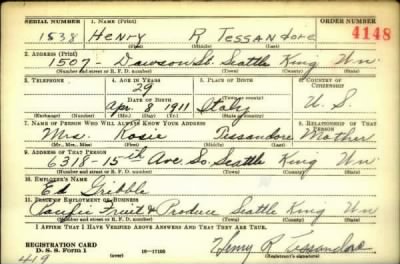 SERIAL NUMBER 1. NAME (Print) ORDER NUMBER
1538 Henry R Tessandore 4148
(First) (Middle) (Last)
2. ADDRESS (Print)
1507- Dawson St. Seattle King Wn
(Number and street or R. F. D. number) (Town) (County) (State)
3. TELEPHONE 4. AGE IN YEARS 5. PLACE OF BIRTH 6. COUNTRY OF CITIZENSHIP
29
DATE OF BIRTH (Town or county)
Apr 8 1911 Italy U. S.
(Exchange) (Number) (Mo.) (Day) (Yr.) (State or country)
7. NAME OF PERSON WHO WILL ALWAYS KNOW YOUR ADDRESS 8. RELATIONSHIP OF THAT PERSON
Mrs. Rosie Tessandore Mother
(Mr., Mrs., Miss) (First) (Middle) (Last)
9. ADDRESS OF THAT PERSON
6318-15th Ave So. Seattle King Wn
(Number and street or R. F. D. number) (Town) (County) (State)
10. EMPLOYER'S NAME
Ed Gribble
11. PLACE OF EMPLOYMENT OR BUSINESS
Pacific Fruit & Produce Seattle King Wn
(Number and street or R. F. D. number) (Town) (County) (State)
I AFFIRM THAT I HAVE VERIFIED ABOVE ANSWERS AND THAT THEY ARE TRUE.
REGISTRATION CARD
D. S. S. Form 1 16-17105 Henry R. Tessandore
(Registrant's signature)
419